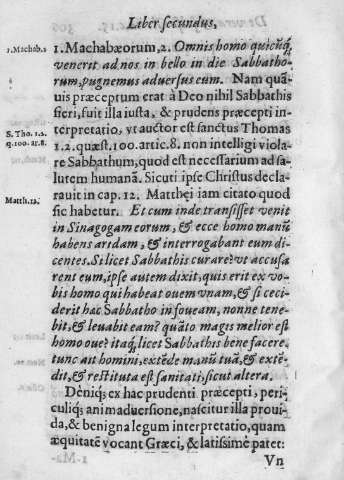 Liber secundus,
1.Machab.2
1. Machabæorum, 2. Omnis homo quicũq́;
venerit ad nos in bello in die Sabbatho-
rum, pugnemus aduersus eum. Nam quã-
uis præceptum erat à Deo nihil Sabbathis
fieri, fuit illa iusta, & prudens præcepti in-
S. Tho. 1.2.
q.100. ar.8.
terpretatio, vt auctor est sanctus Thomas
1.2. quæst. 100. artic. 8. non intelligi viola-
re Sabbathum, quod est necessarium ad sa-
lutem humanã. Sicuti ipse Christus decla-
Matth.12.
rauit in cap. 12. Matthei iam citato quod
sic habetur. Et cum inde transisset venit
in Sinagogam eorum, & ecce homo manũ
habens aridam, & interrogabant eum di-
centes. Si licet Sabbathis curare? vt accusa
rent eum, ipse autem dixit, quis erit ex vo-
bis homo qui habeat ouem vnam, & si ceci-
derit hac Sabbatho in foueam, nonne tene-
bit, & leuabit eam? quãto magis melior est
homo oue? itaq́; licet Sabbathis bene facere.
tunc ait homini, extẽde manũ tuã, & extẽ-
dit, & restituta est sanitati, sicut altera.
Deniq́; ex hac prudenti præcepti, peri-
culiq́; animaduersione, nascitur illa proui-
da, & benigna legum interpretatio, quam
æquitatẽ vocant Græci, & latissimè patet:
Vn